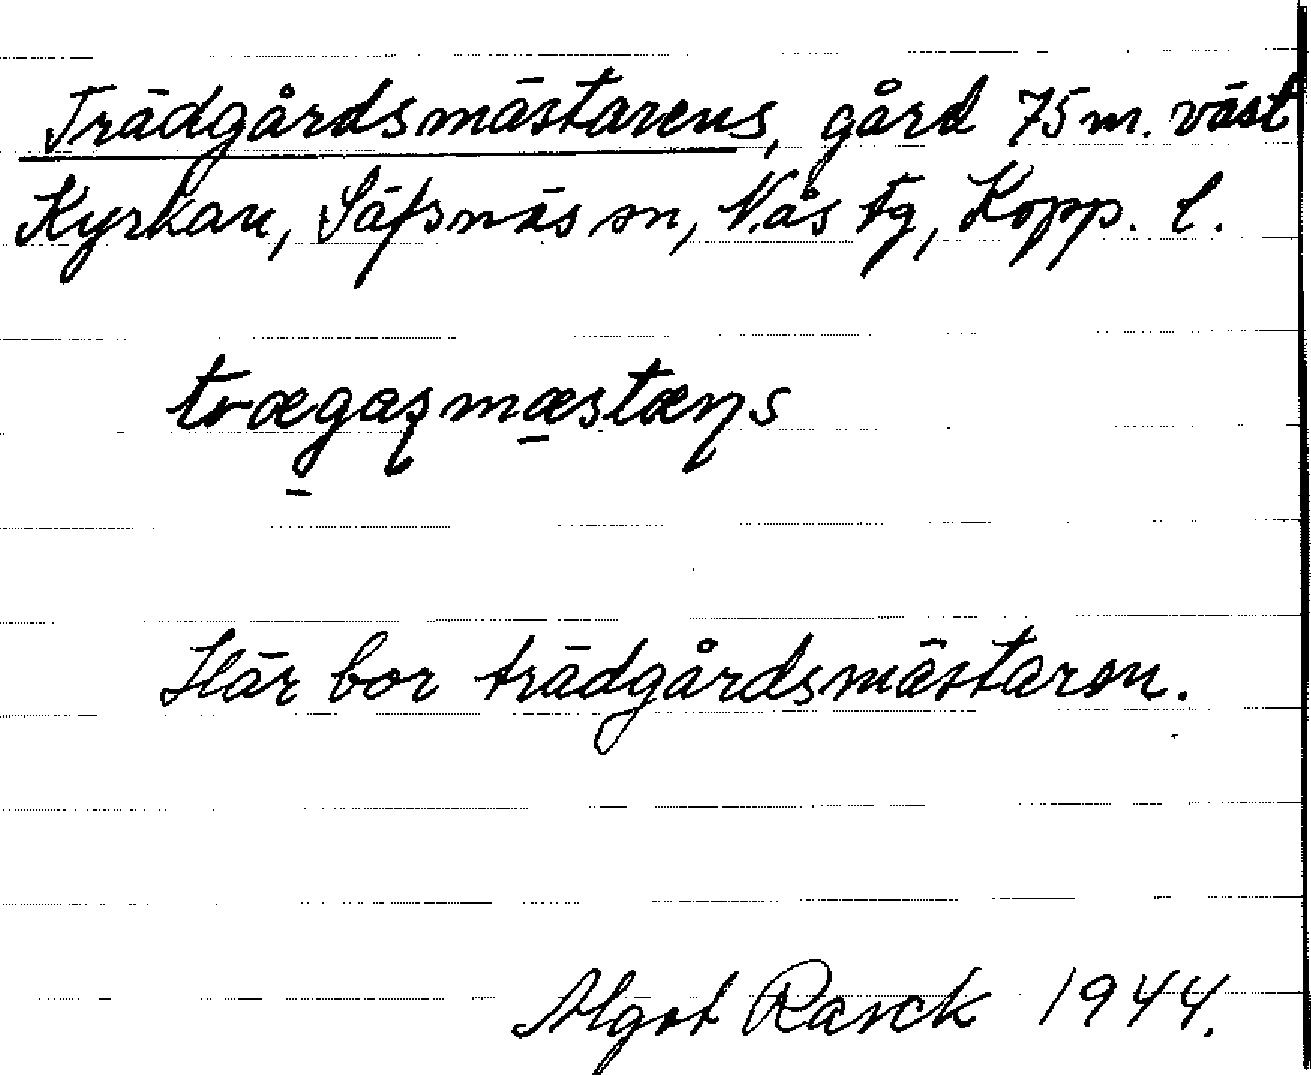 Trädgårdsmästarens, gård 75 m. väst
Kyrkan, Säfsnäs sn, Nås tg, Kopp. l.
trægaʂmæstæɳs
Här bor trädgårdsmästaren.
Algot Rarck 1944.